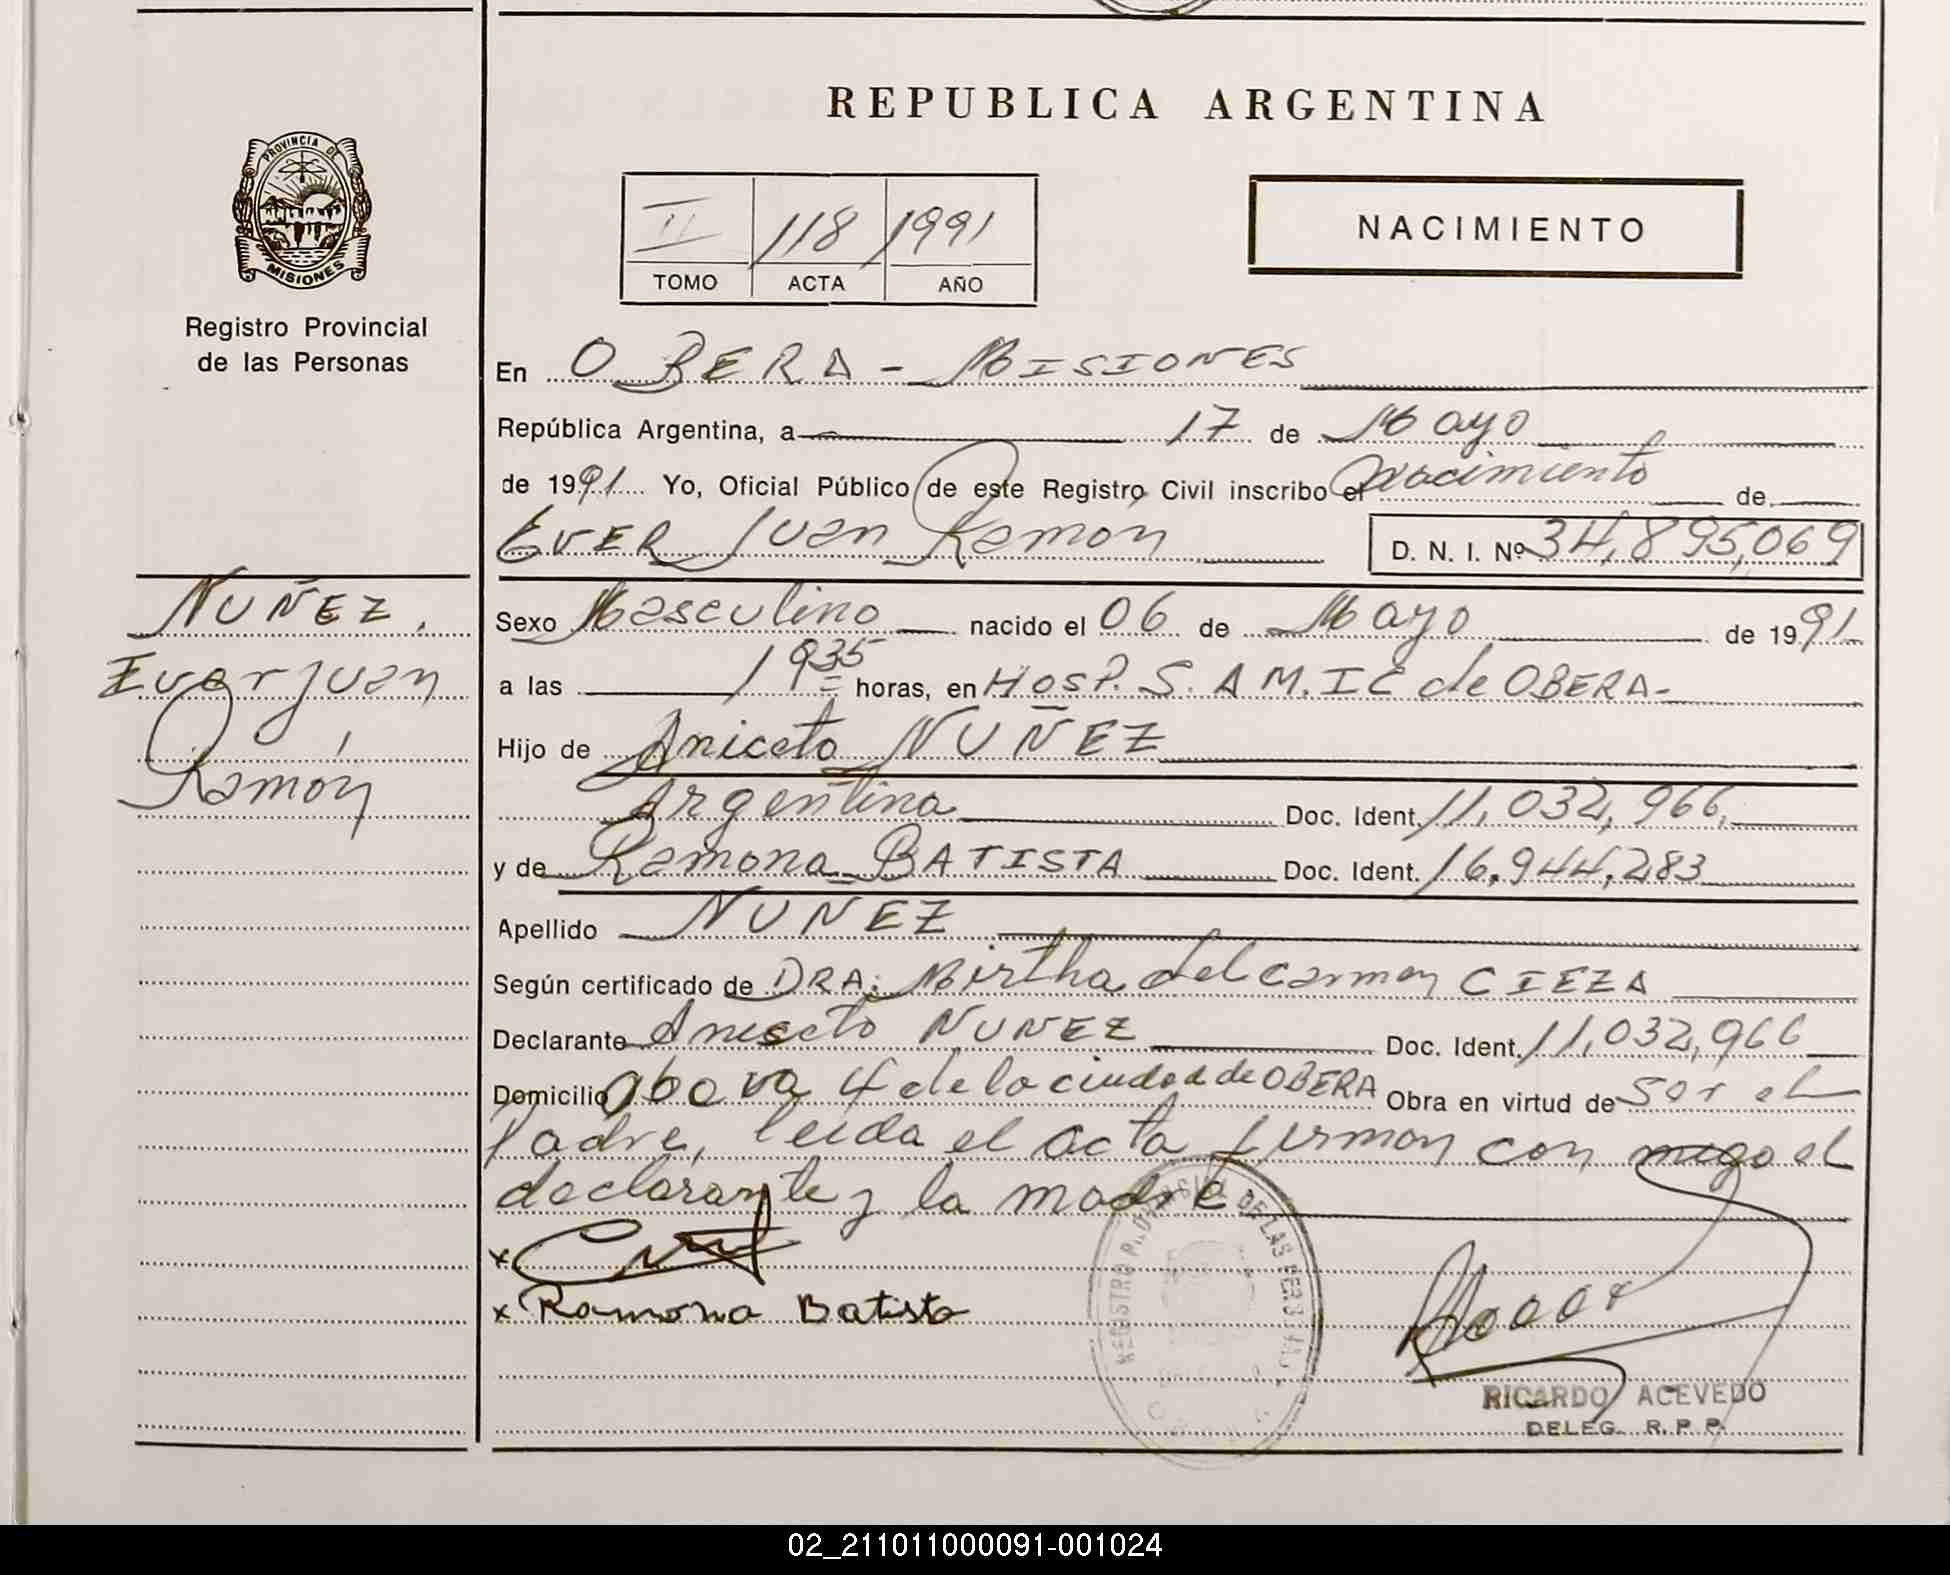 REPUBLICA ARGENTINA
PROVINCIA DE MISIONES
Registro Provincial
de las Personas
II 118 1991
TOMO ACTA AÑO
NACIMIENTO
En OBERA - MISIONES
República Argentina, a 17 de Mayo
de 1991 Yo, Oficial Público de este Registro Civil inscribo el nacimiento de
EVER Juan Ramón D. N. I. Nº 34,895,069
NUÑEZ.
Ever Juan
Ramón
Sexo Masculino nacido el 06 de Mayo de 1991
a las 1935 horas, en HOSP. S. A M. I C de OBERA-
Hijo de Aniceto NUÑEZ
Argentina Doc. Ident. 11,032,966,
y de Ramona BATISTA Doc. Ident. 16,944,283
Apellido NUÑEZ
Según certificado de DRA: Mirtha del Carmen CIEZA
Declarante Aniseto NUNEZ Doc. Ident. 11,032,966
Domicilio 4 de la ciudad de OBERA Obra en virtud de Ser el
Padre, leida el acta firman con migo el
declarante y la madre
x
x Ramona Batista
REGISTRO PROVINCIAL DE LAS PERSONAS
RICARDO ACEVEDO
DELEG. R. P. P.
02_211011000091-001024